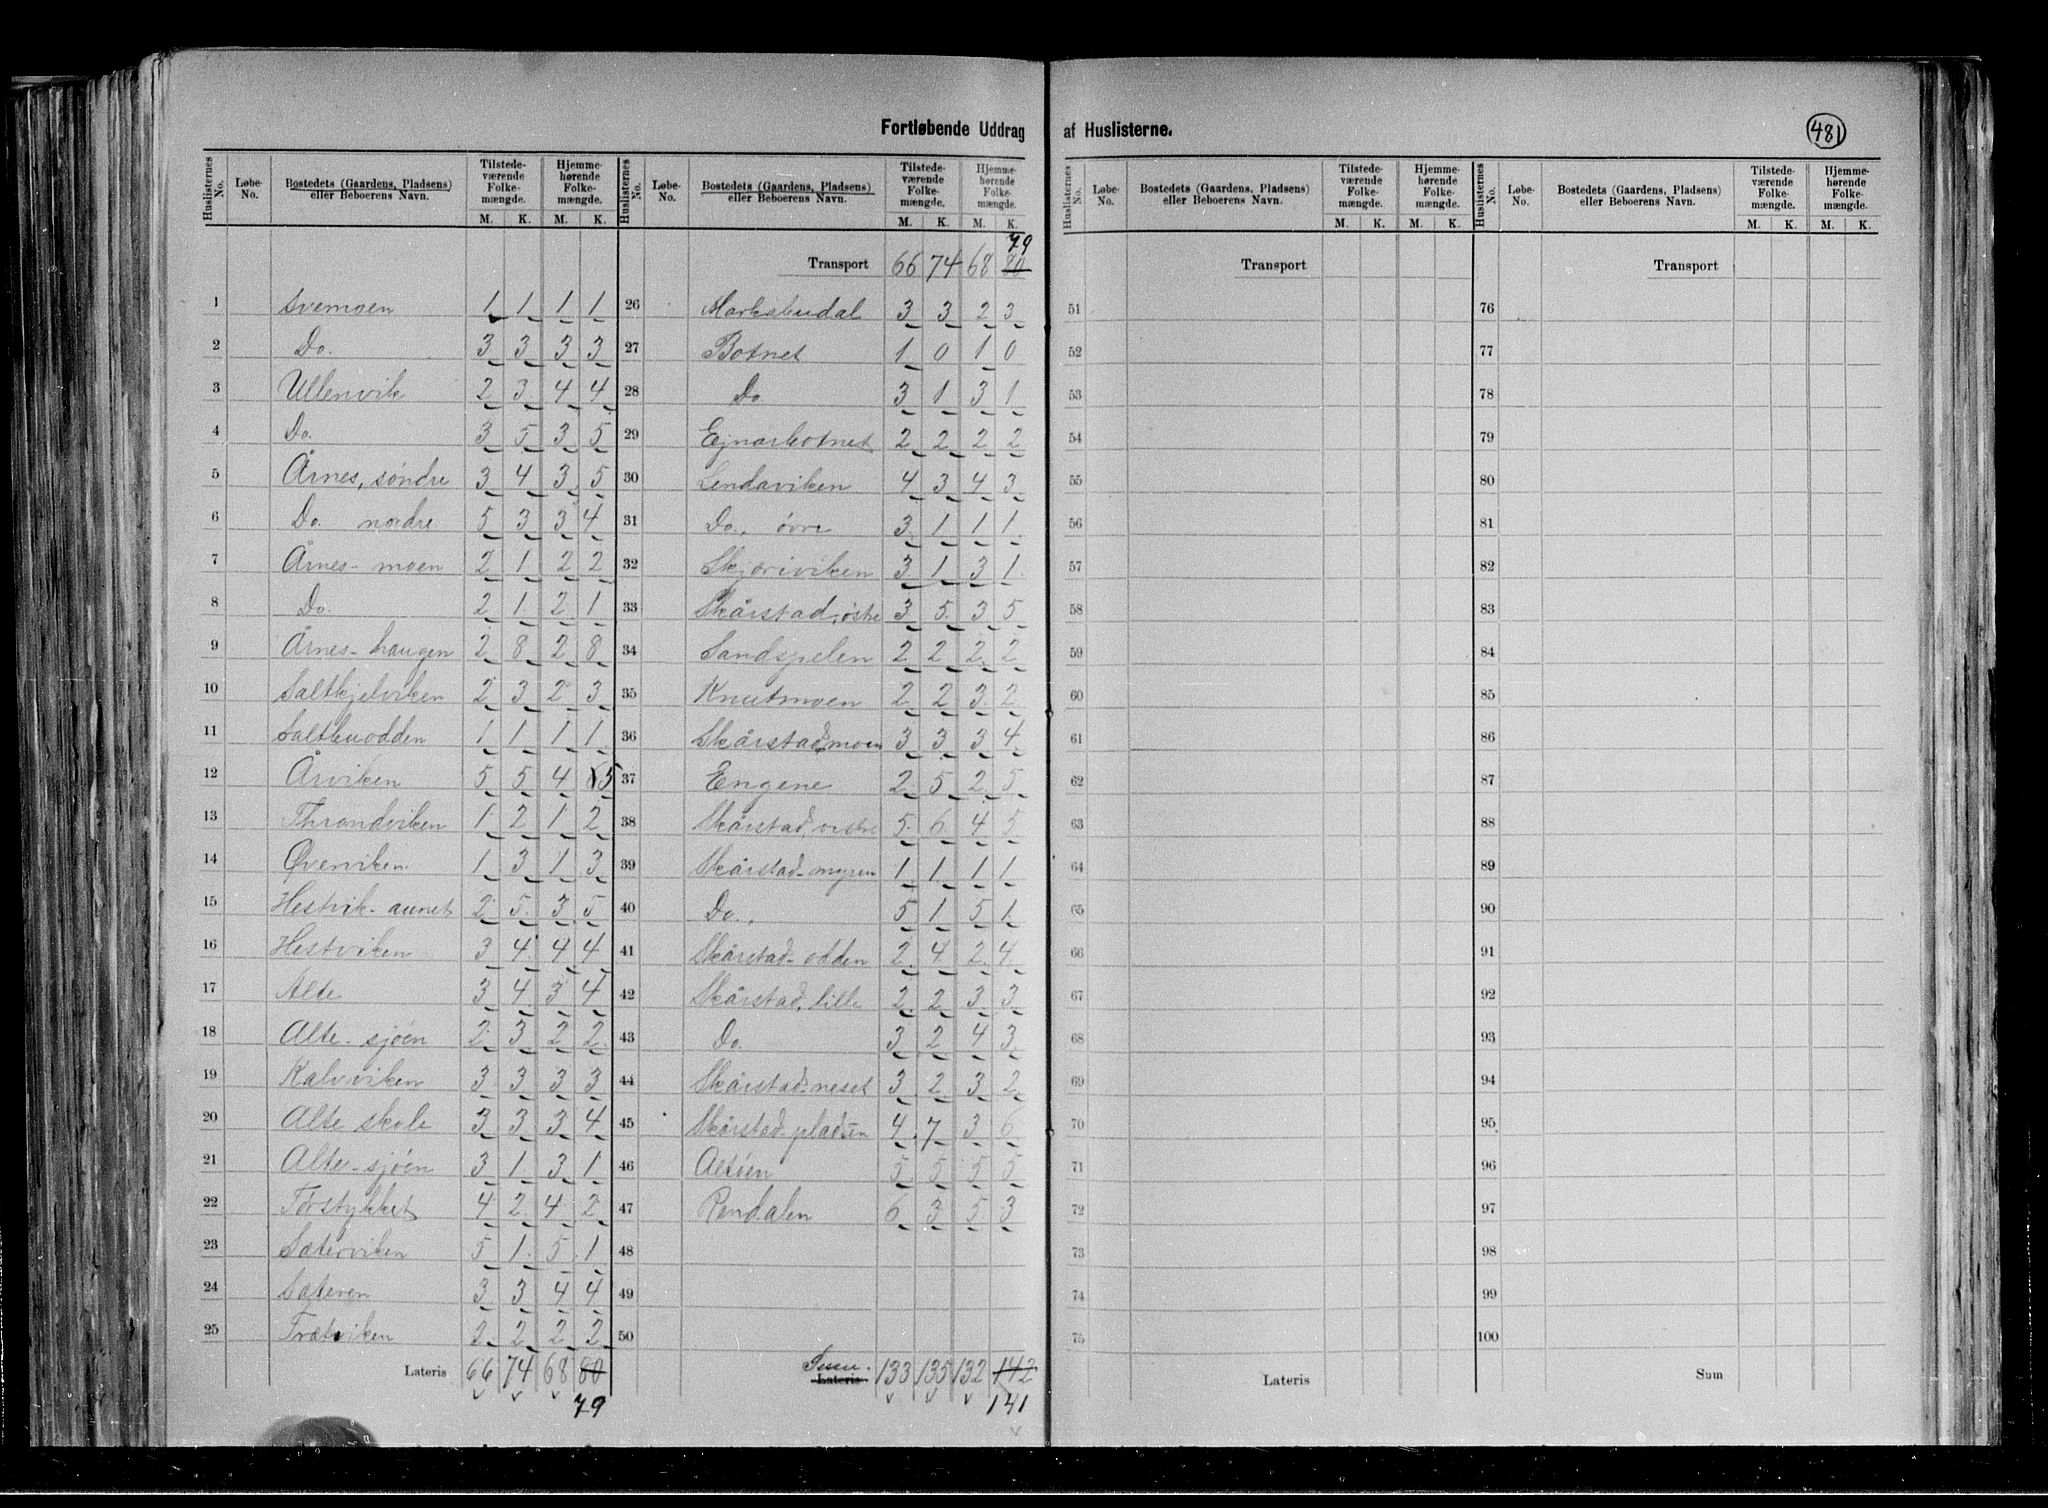 Fortløbende Uddrag af Huslisterne.
481
Huslisternes No. Løbe-No. Bostedets (Gaardens, Pladsens) eller Beboerens Navn. Tilstedeværende Folkemængde. M. K. Hjemmehørende Folkemængde. M. K.
1 Svemoen 1 1 1 1
2 Do. 3 3 3 3
3 Ullenvik 2 3 4 4
4 Do. 3 5 3 5
5 Årnes, søndre 3 4 3 5
6 Do. nordre 5 3 3 4
7 Årnes-moen 2 1 2 2
8 Do. 2 1 2 1
9 Årnes-haugen 2 8 2 8
10 Saltkjelviken 2 3 2 3
11 Saltbuodden 1 1 1 1
12 Årviken 5 5 4 5
13 Throndviken 1 2 1 2
14 Øverviken 1 3 1 3
15 Hestvik-aunet 2 5 3 5
16 Hestviken 3 4 4 4
17 Alte 3 4 3 4
18 Alte-sjöen 2 3 2 2
19 Kalvviken 3 3 3 3
20 Alte skole 3 3 3 4
21 Alte-sjöen 3 1 3 1
22 Törstykket 4 2 4 2
23 Sæterviken 5 1 5 1
24 Sæteren 3 3 4 4
25 Trætviken 2 2 2 2
Lateris 66 74 68 80
79
Huslisternes No. Løbe-No. Bostedets (Gaardens, Pladsens) eller Beboerens Navn. Tilstedeværende Folkemængde. M. K. Hjemmehørende Folkemængde. M. K.
79
Transport 66 74 68 80
26 Marksbudal 3 3 2 3
27 Botnet 1 0 1 0
28 Do 3 1 3 1
29 Ejnarbotnet 2 2 2 2
30 Lendaviken 4 3 4 3
31 Do., övre 3 1 1 1
32 Skjøriviken 3 1 3 1
33 Skårstad, östre 3 5 3 5
34 Sandspelen 2 2 2 2
35 Knutmoen 2 2 3 2
36 Skårstadmoen 3 3 3 4
37 Engene 2 5 2 5
38 Skårstad, vestre 5 6 4 5
39 Skårstad-myren 1 1 1 1
40 Do., 5 1 5 1
41 Skårstad-odden 2 4 2 4
42 Skårstad, lille 2 2 3 3
43 Do. 3 2 4 3
44 Skårstad-neset 3 2 3 2
45 Skårstad pladsen 4 7 3 6
46 Altöen 5 5 5 5
47 Rendalen 6 3 5 3
48
49
50
Lateris 133 135 132 142
141
Huslisternes No. Løbe-No. Bostedets (Gaardens, Pladsens) eller Beboerens Navn. Tilstedeværende Folkemængde. M. K. Hjemmehørende Folkemængde. M. K.
Transport
51
52
53
54
55
56
57
58
59
60
61
62
63
64
65
66
67
68
69
70
71
72
73
74
75
Lateris
Huslisternes No. Løbe-No. Bostedets (Gaardens, Pladsens) eller Beboerens Navn. Tilstedeværende Folkemængde. M. K. Hjemmehørende Folkemængde. M. K.
Transport
76
77
78
79
80
81
82
83
84
85
86
87
88
89
90
91
92
93
94
95
96
97
98
99
100
Sum